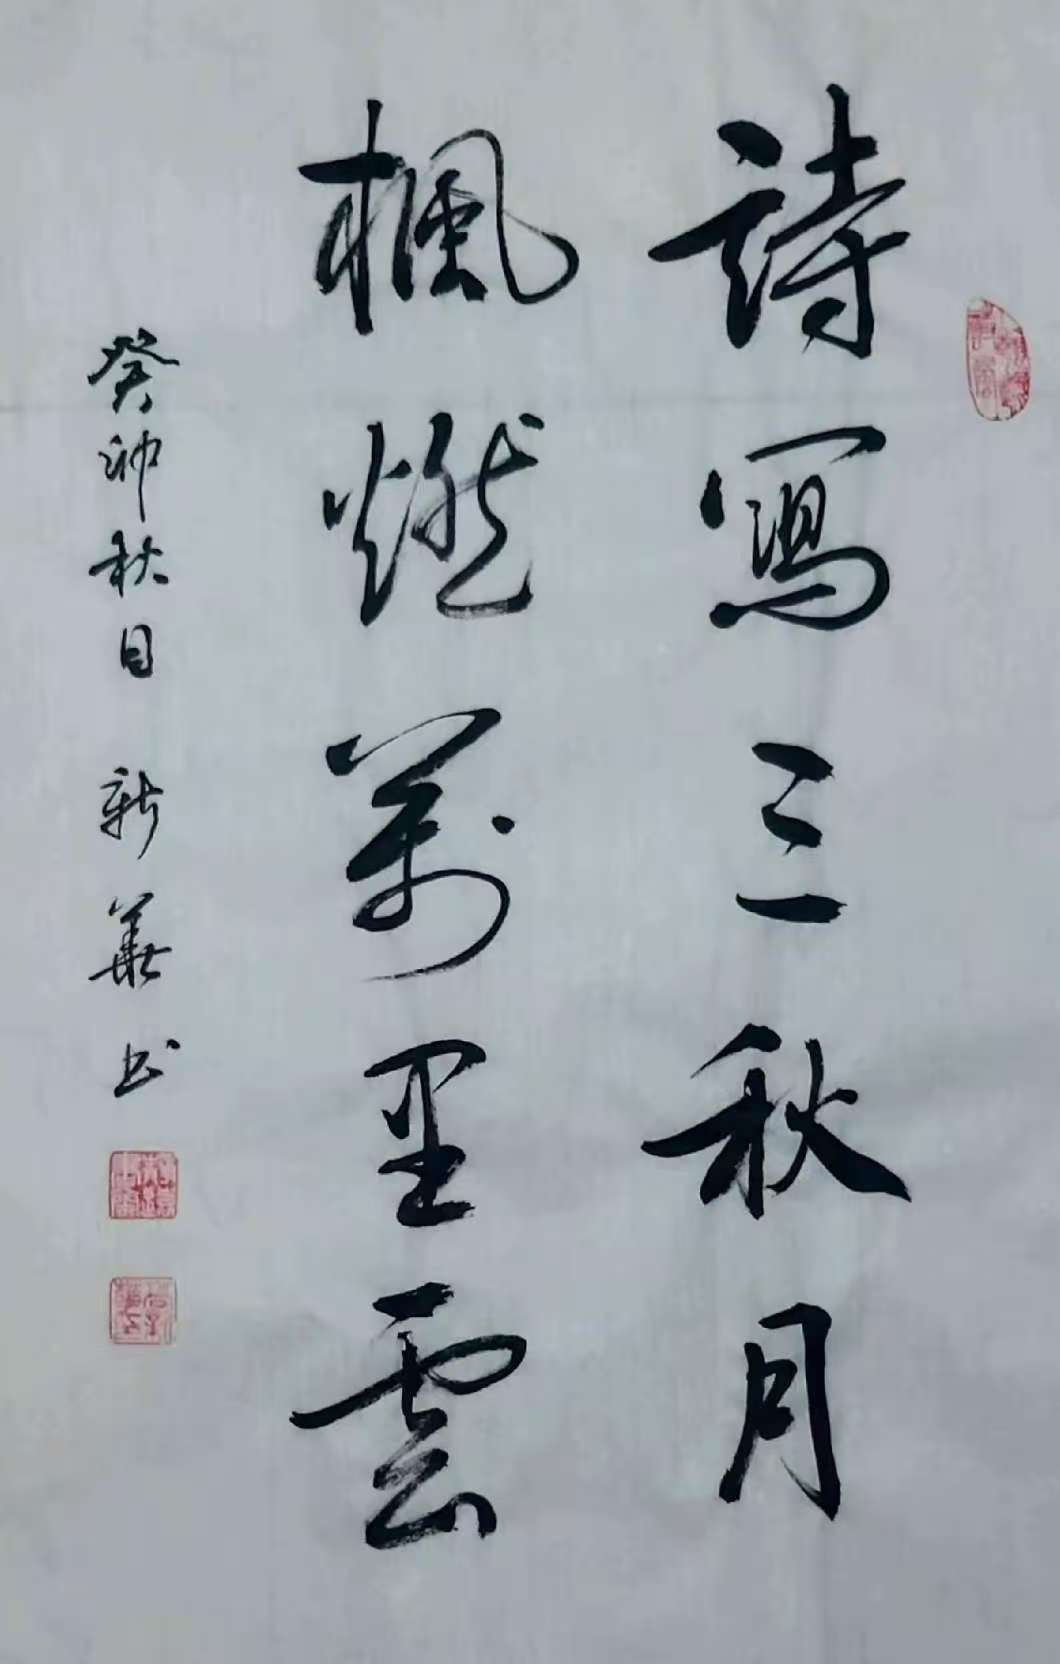 詩寫三秋月
楓燃萬里雲
癸卯秋月 新華书